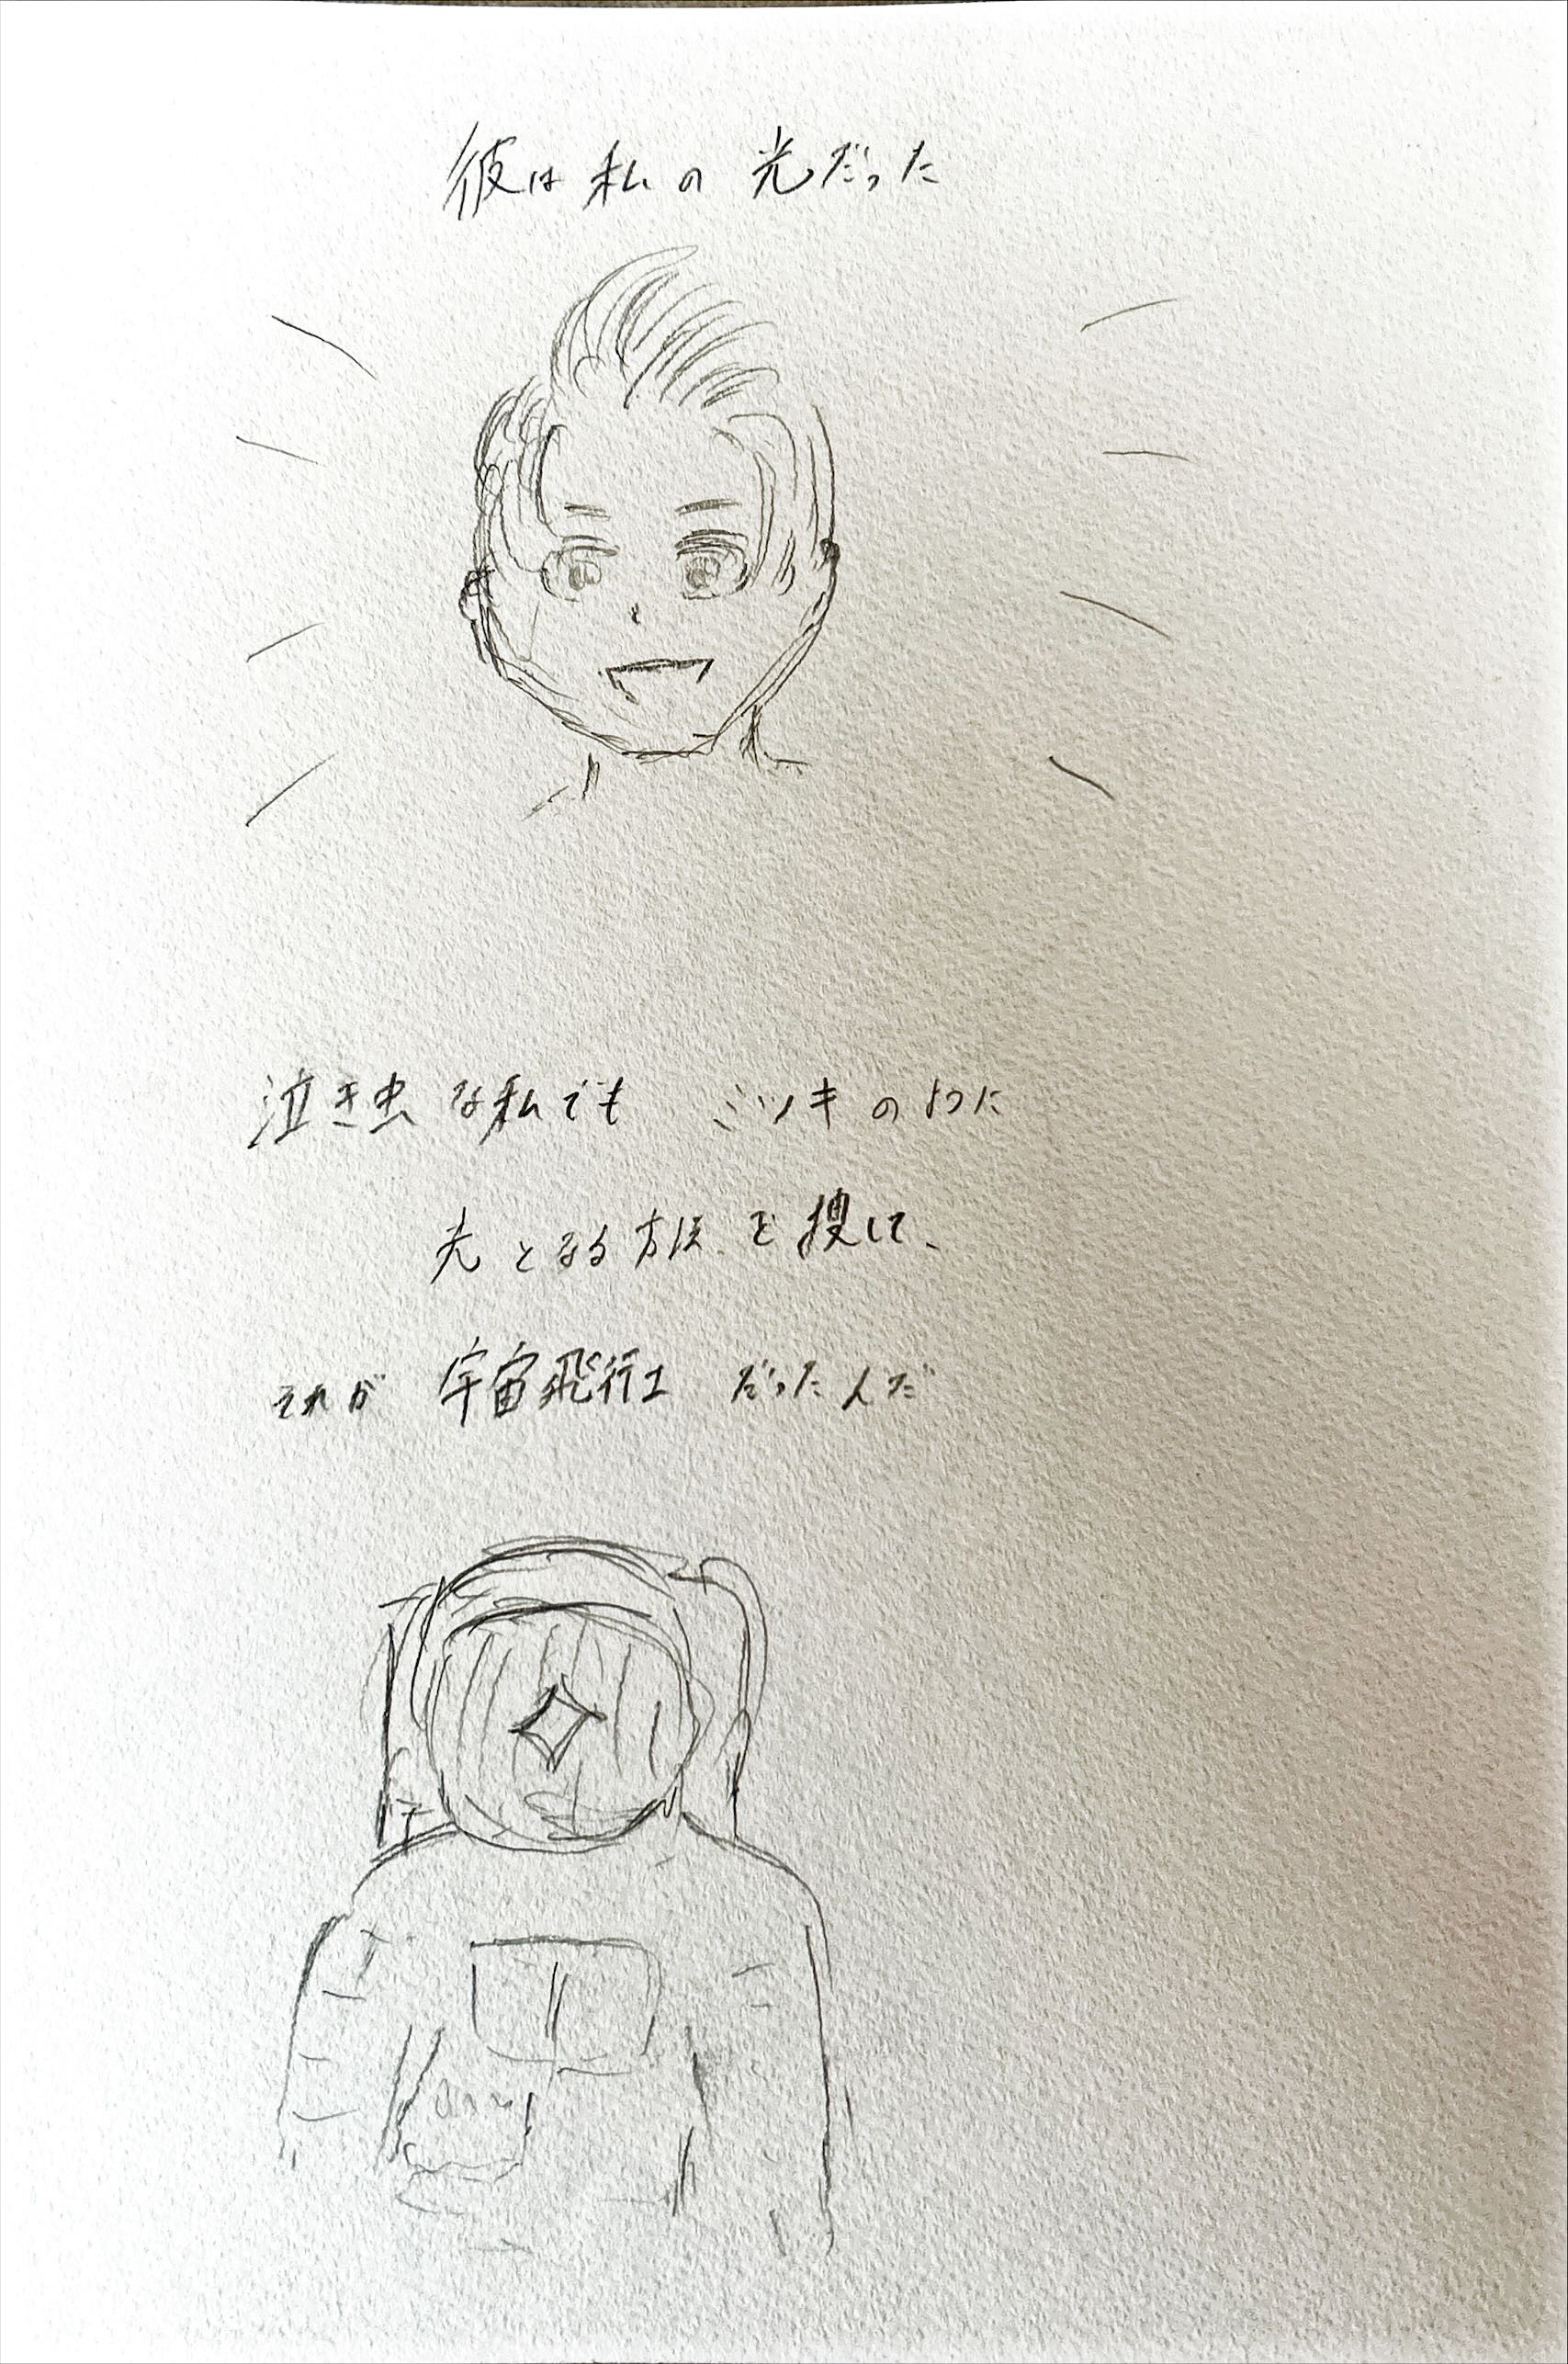 彼は私の光だった
泣き虫な私でも ミツキのように
光となる方法を捜して、
それが 宇宙飛行士 だったんだ